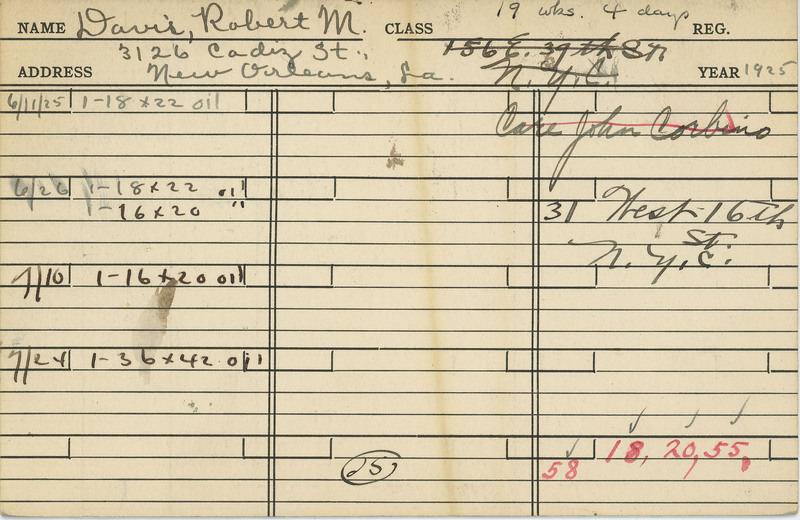 19 wks. 4 days
NAME Davis, Robert M. CLASS REG.
3126 Cadiz St., 156 E. 39th St.
ADDRESS New Orleans, La. N.Y.C. YEAR 1925
6/11/25 1-18x22 oil
Care John Corbino
6/26 1-18x22 oil
1-16x20 "
31 West 16th
St.
N.Y.C.
7/10 1-16x20 oil
7/24 1-36x42 oil
18, 20, 55,
25 58